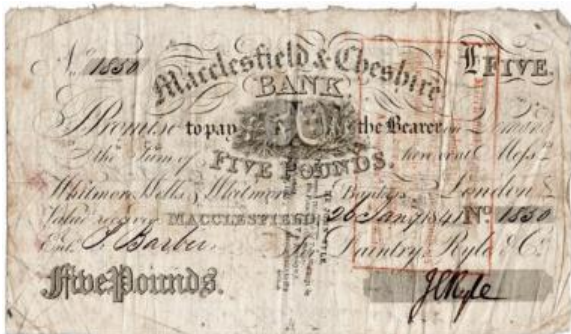 No 1550
Macclesfield & Cheshire
BANK
£FIVE.
I Promise to pay the Bearer on Demand
the Sum of FIVE POUNDS. here or at Messrs
Whitmore Wells & Whitmore Bankers London
Value received MACCLESFIELD 26 Jany 1841 No 1550
Entd J. Barber For Daintry, Ryle & Co
Five Pounds.
J C Ryle